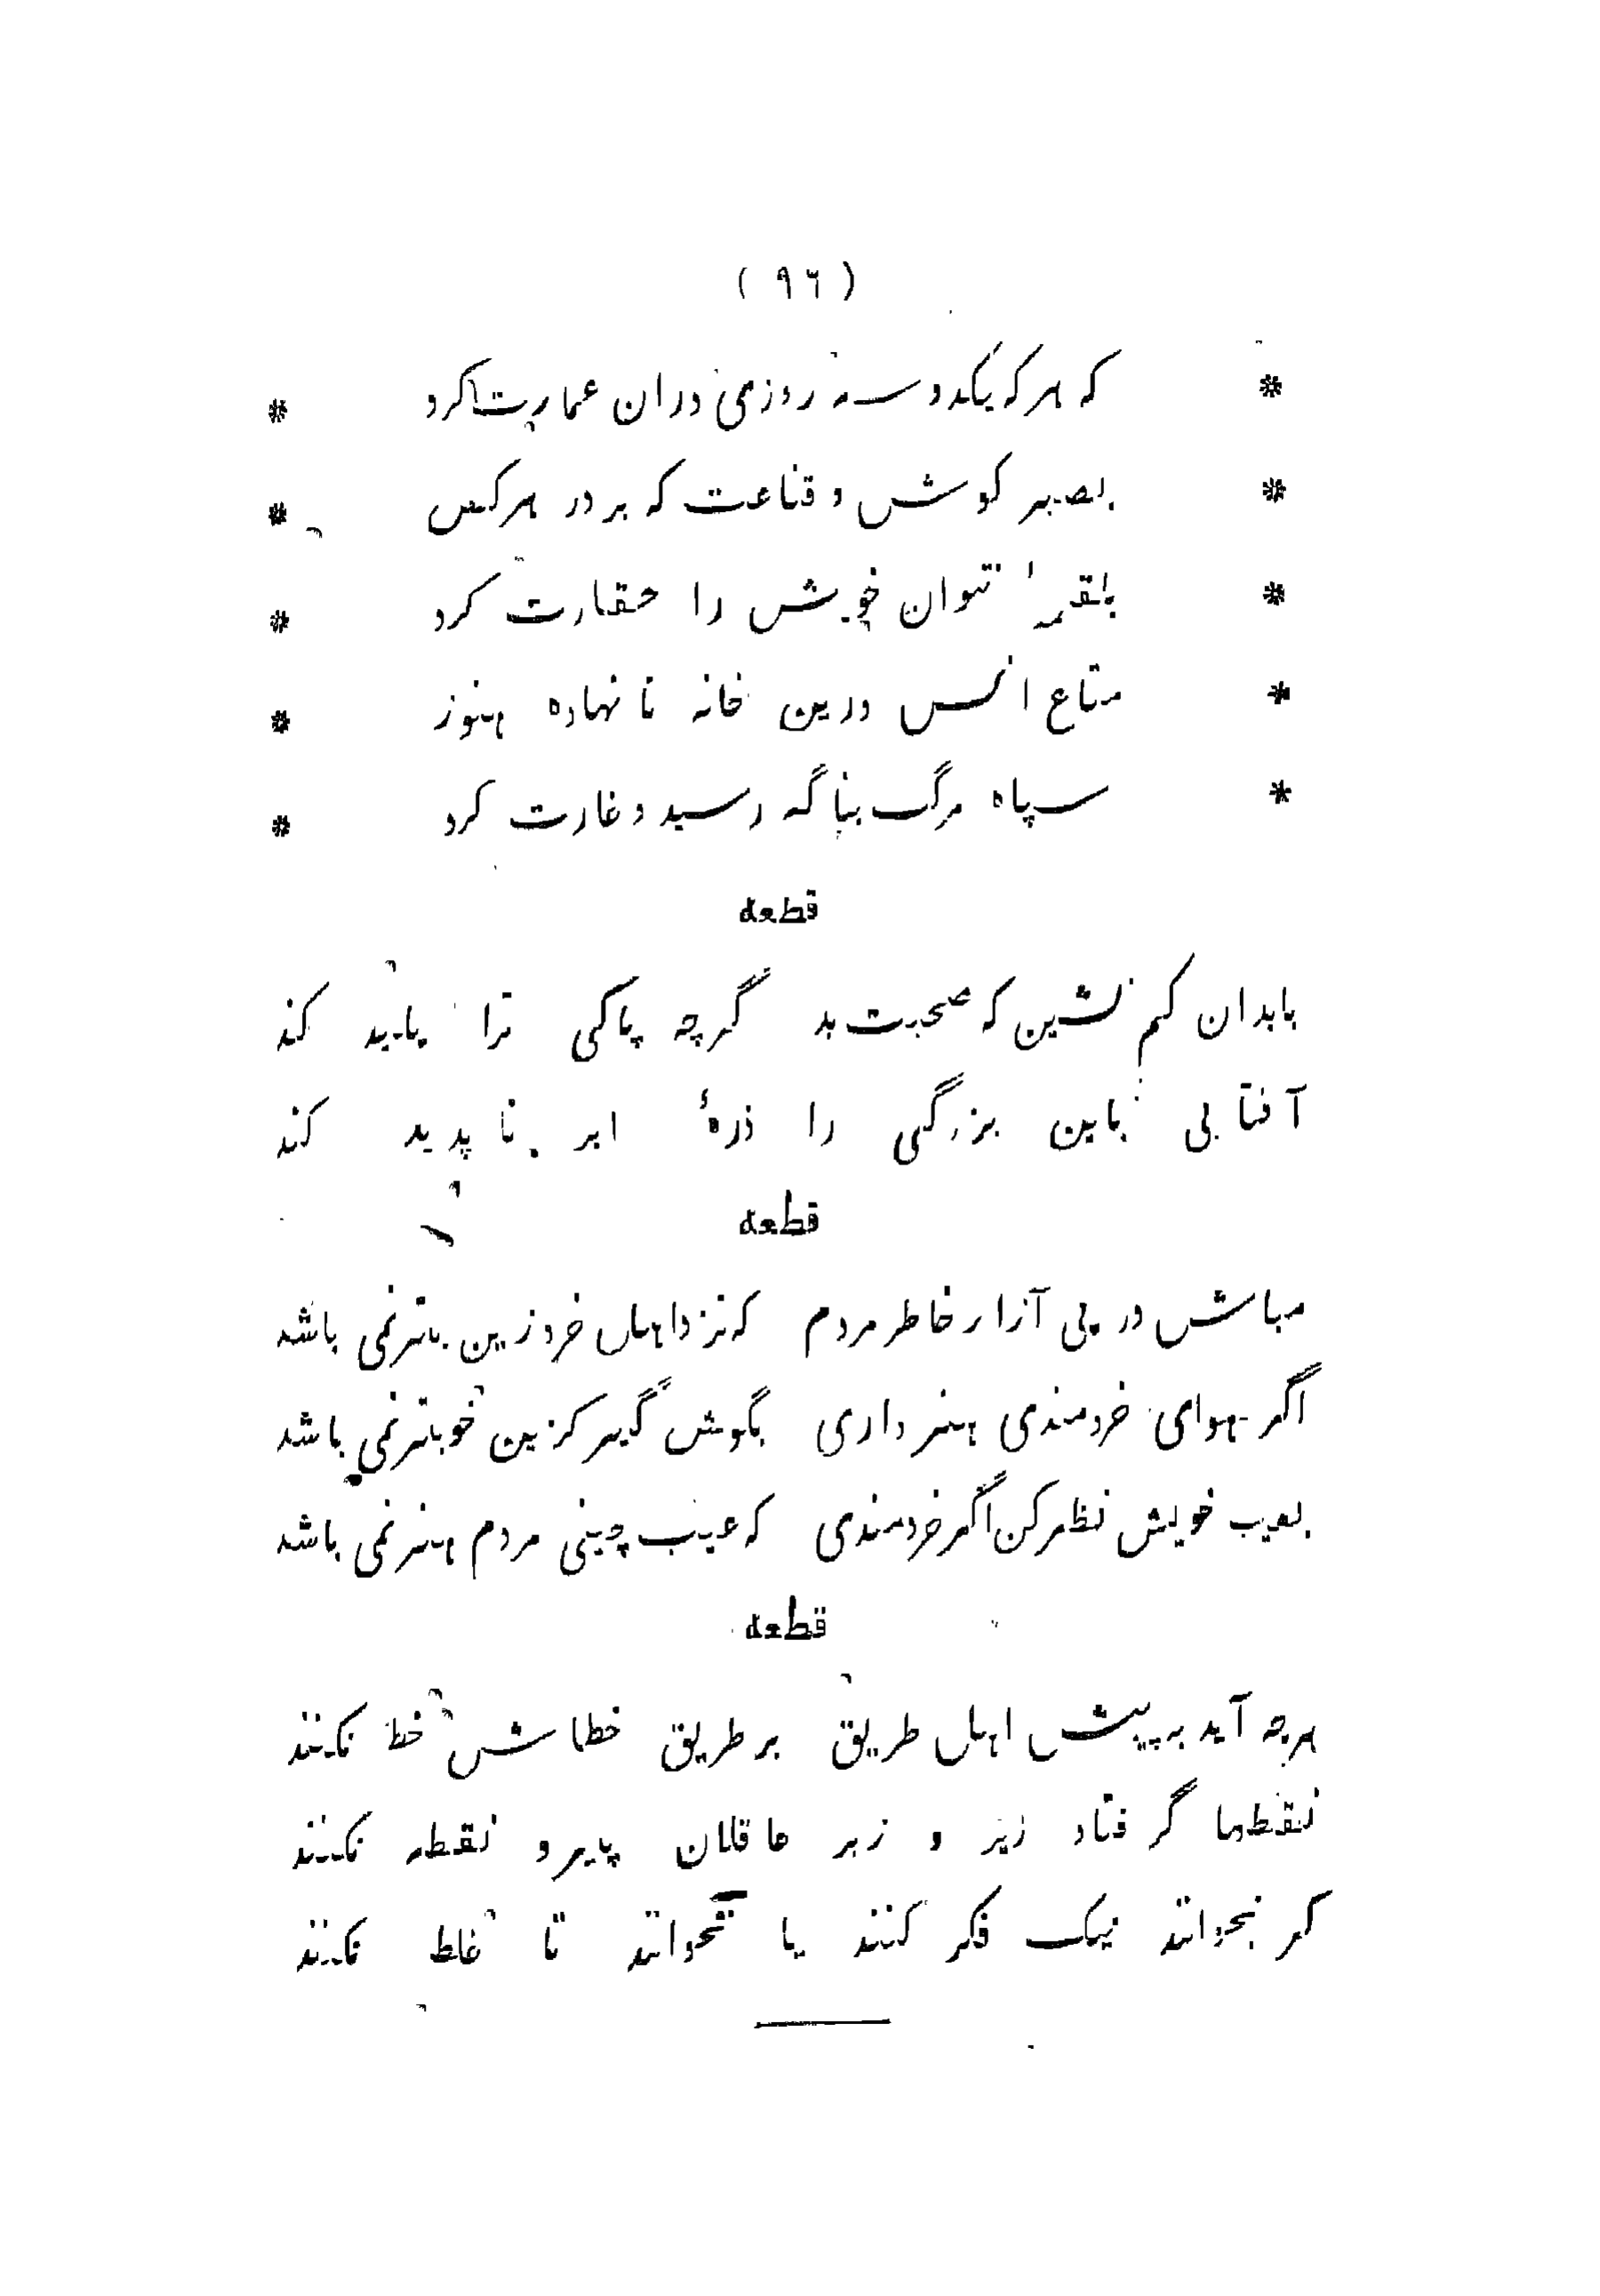 ( ٩٦ )
* که هر که یکدو سه روزمی دران عمارت کرد *
* بصبر کوش و قناعت که بر در هر کس *
* بلقمهٔ نتوان خویش را حقارت کرد *
* متاع انس درین خانه نا نهاده هنوز *
* سپاه مرگ بناگه رسید و غارت کرد *
قطعه
بابدان کم نشین که صحبت بد گرچه پاکی ترا پلید کند
آفتابی باین بزرگی را ذرهٔ ابر ناپدید کند
قطعه
مباش در پی آزار خاطر مردم که نزد اهل خرد زین بترنمی باشد
اگر هوای خردمندی هنر داری بگوش گیر کزین خوبترنمی باشد
بعیب خویش نظر کن اگر خردمندی که عیب چینی مردم هنر نمی باشد
قطعه
هرچه آید به پیش اهل طریق بر طریق خطاش خط نکنند
نقطها گر فتاد زیر و زبر عاقلان پیرو نقطه نکنند
گر بخوانند نیک فکر کنند یا نخوانند تا غلط نکنند